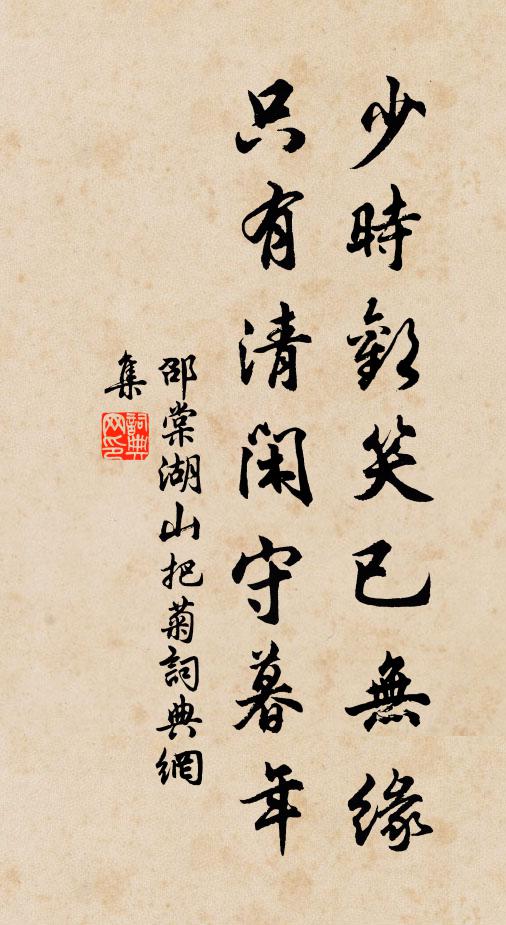 少時歡笑已無緣
只有清閑守暮年
邵棠湖山把菊詞典網
集
詞典
网印